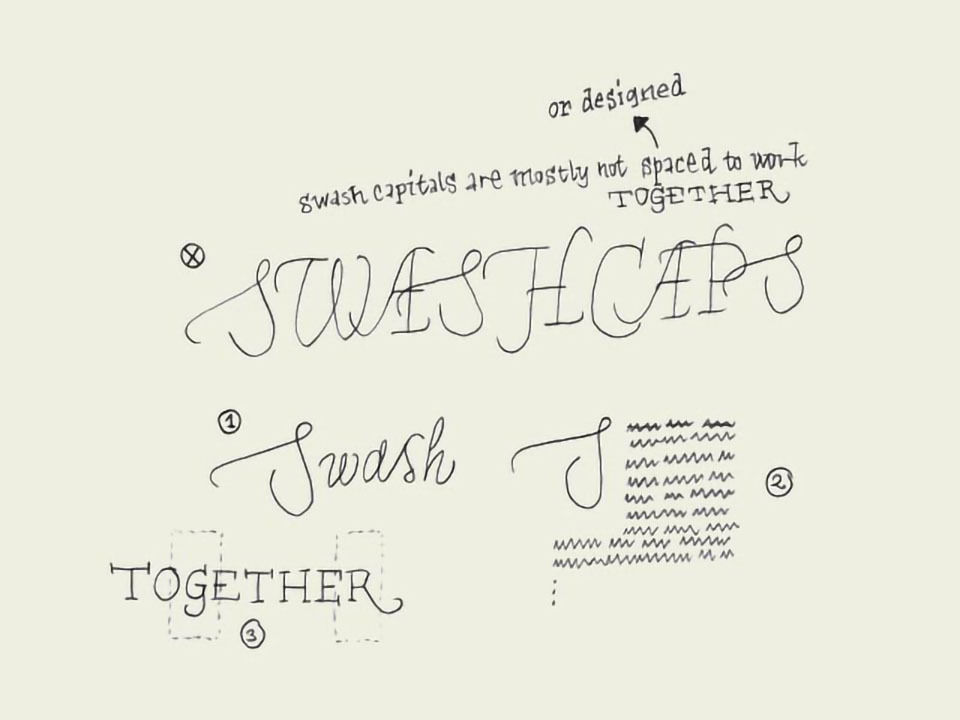 or designed
swash capitals are mostly not spaced to work
TOGETHER
SWASHCAPS
1
Swash
S
2
TOGETHER
3